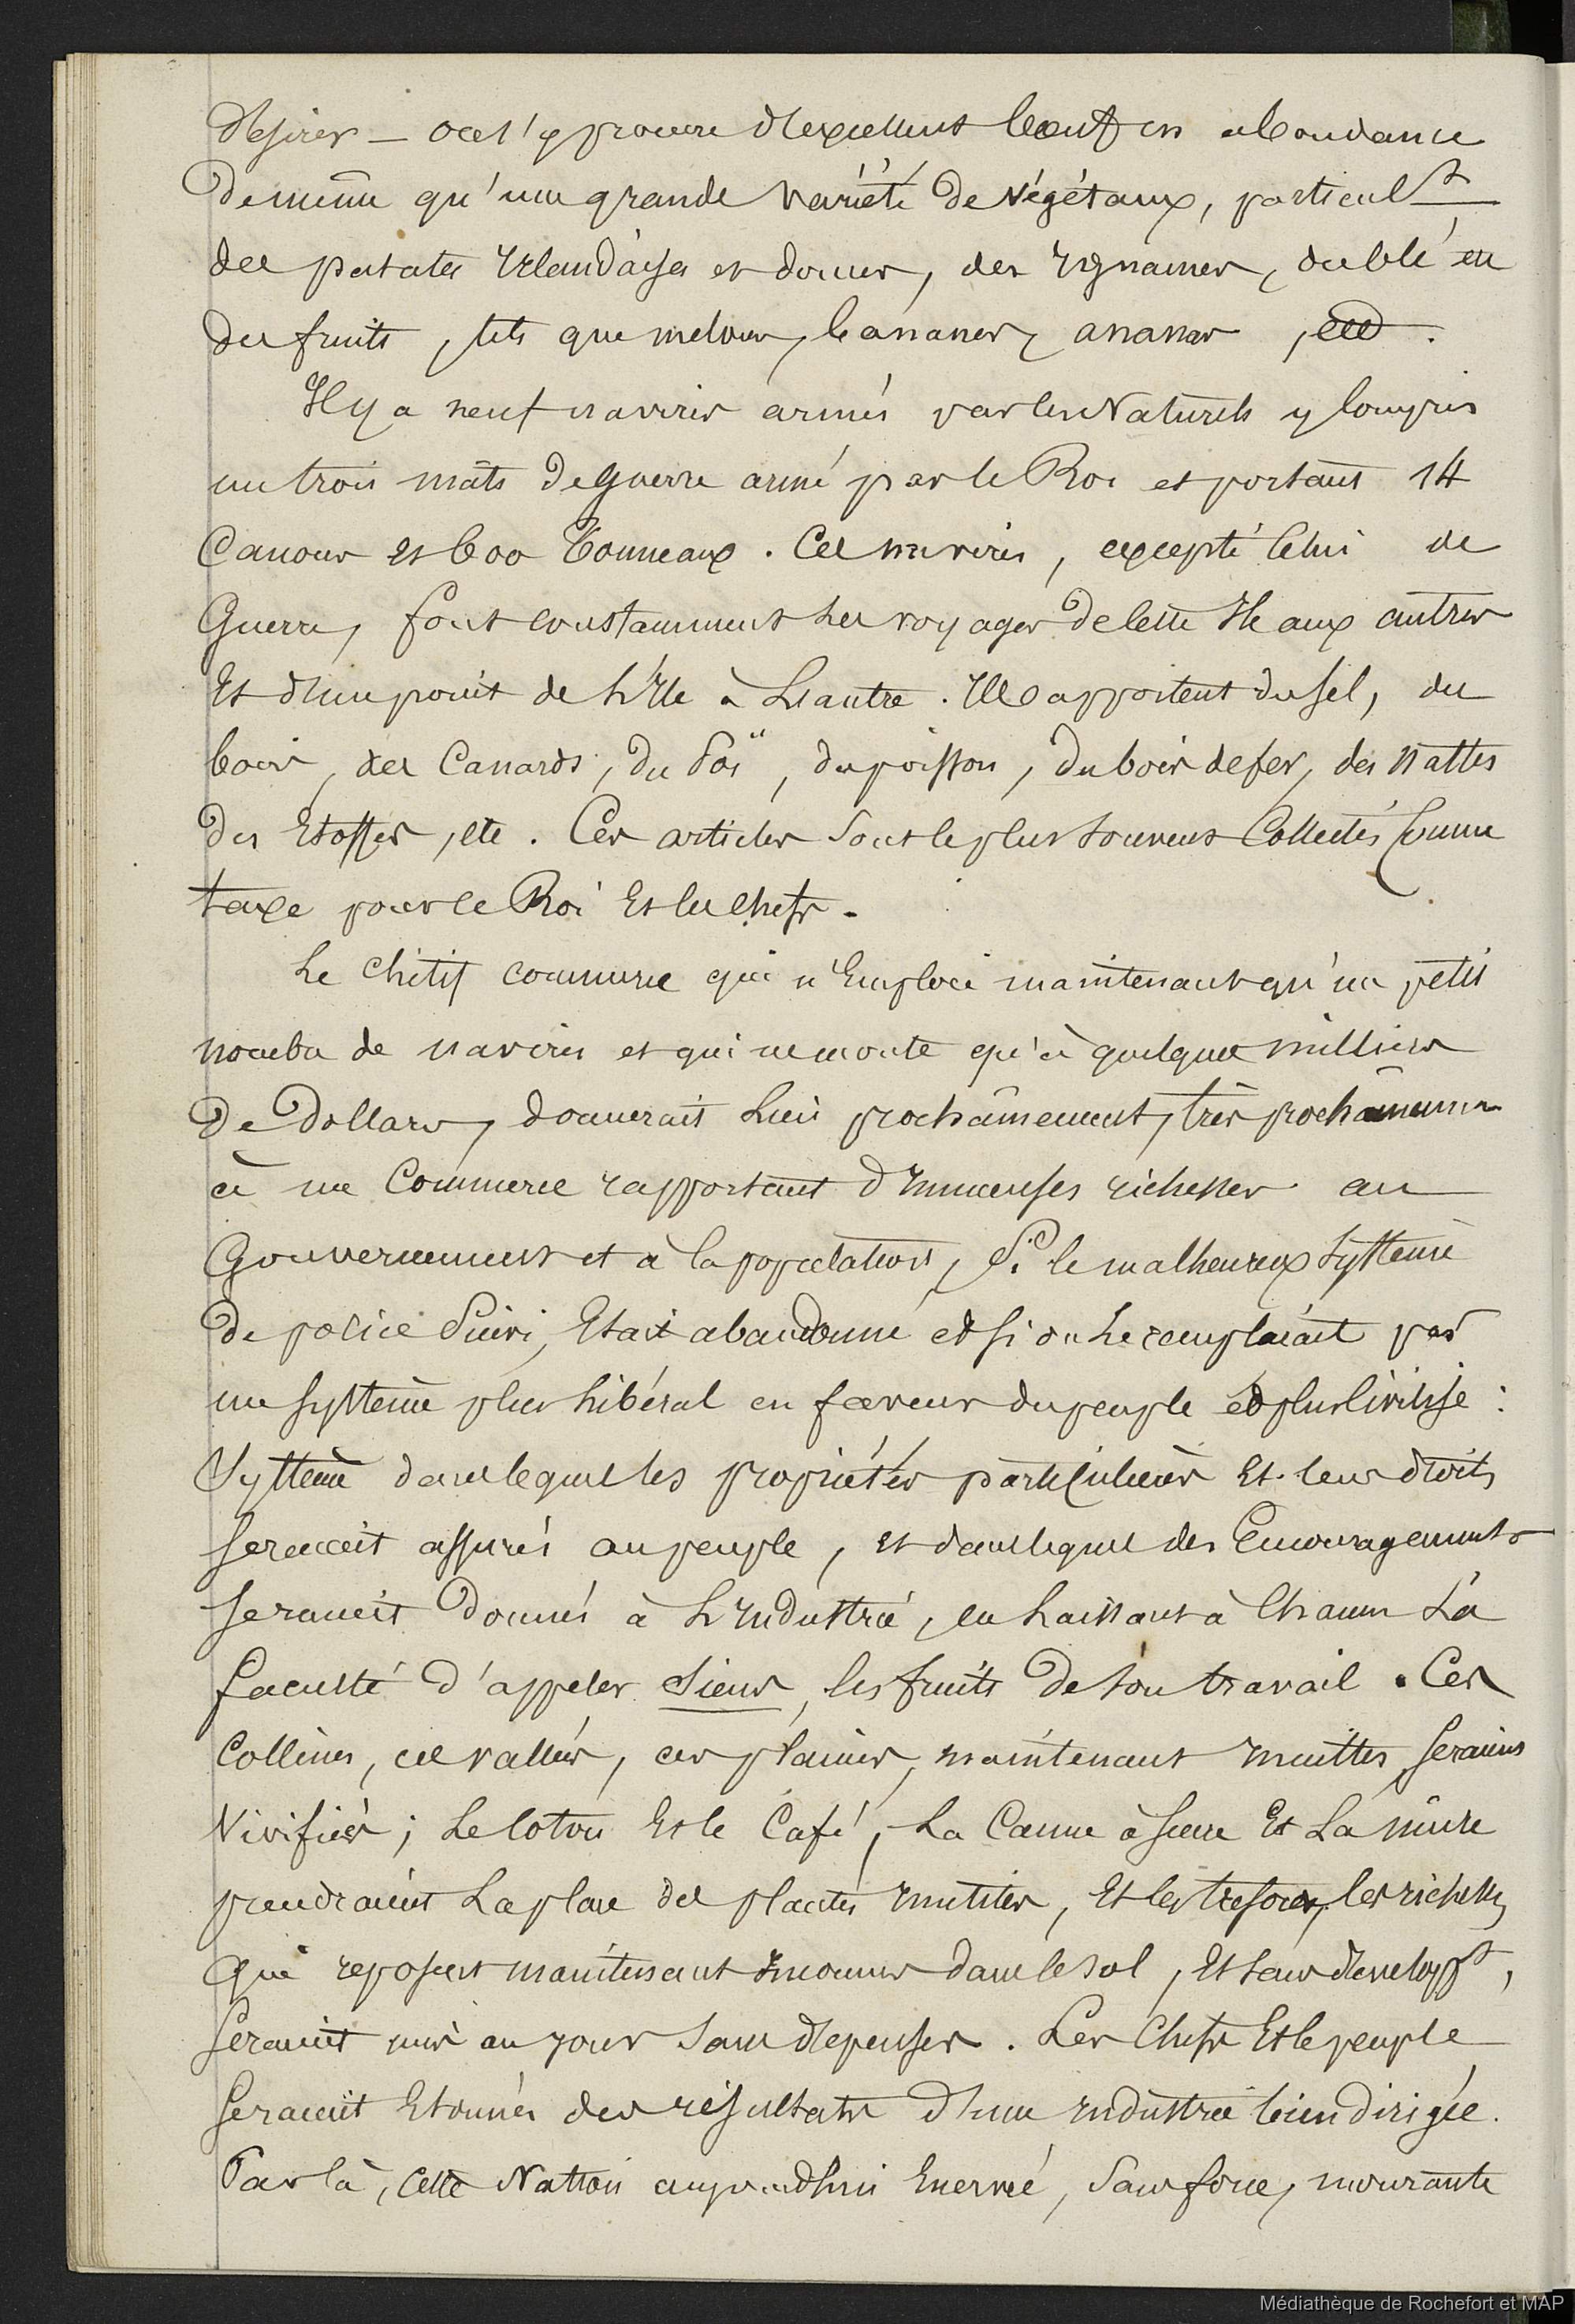 désirer — on s'y procure d'excellent bœuf en abondance
de même qu'une grande variété de végétaux, particul<sup>t</sup>
des patates Irlandaises et douces, des Ignames, du blé et
des fruits, tels que melons, bananes, ananas, etc.
Il y a neuf navires armés par les Naturels y compris
un trois mâts de guerre armé par le Roi et portant 14
Canons et 600 Tonneaux. Ces navires, excepté celui de
Guerre, font constamment les voyages de cette Ile aux autres
Et d'un point de L'Ile à L'autre. Ils apportent du sel, du
bois, des Canards, du Poï, du poisson, du bois de fer, des nattes
des Etoffes, etc. Ces articles sont le plus souvent Collectés comme
taxe pour le Roi Et les chefs.
Le chétif commerce qui n'Emploie maintenant qu'un petit
nombre de navires et qui ne monte qu'à quelques milliers
De Dollars, donnerait Lieu prochainement, très prochainement
à un Commerce rapportant d'Immenses richesses au
Gouvernement et à la population, Si le malheureux systême
de police Suivi, Etait abandonné et si on Le remplaçait par
un systême plus Libéral en faveur du peuple et plus civilisé :
Systême dans lequel les propriétés particulières Et leurs droits
seraient assurés au peuple, et dans lequel des Encouragements
seraient donnés à L'Industrie, en Laissant à Chacun La
faculté d'appeler Siens, les fruits de son travail. Ces
Collines, ces vallées, ces plaines, maintenant Incultes, seraient
Vivifiées ; Le Coton Et le Café, La Canne à sucre Et La mûre
prendraient La place des plantes Inutiles, Et les trésors, les richesses
qui reposent maintenant Inconnus dans le sol, Et sans développ<sup>t</sup>,
seraient mis au jour sans dépenses. Les Chefs Et le peuple
seraient Etonnés des résultats d'une Industrie bien dirigée.
Par là, cette Nation aujourd'hui Enervée, sans force, mourante
Médiathèque de Rochefort et MAP